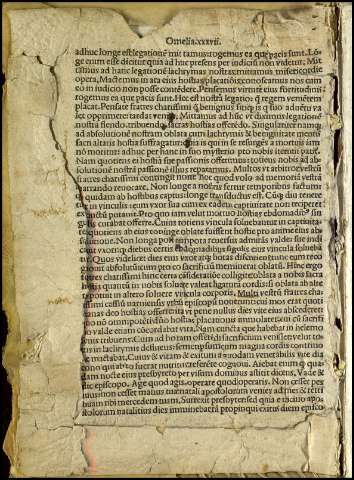 Omelia.xxxvii.
adhuc longe est legationē mittamus: rogemus ea que pacis sunt. Lō
ge enim esse dicitur quia adhuc presens per iudiciū non videtur. Mit
tamus ad hanc legationē lachrymas nostras: mittamus misericordie
opera. Mactemus in ara eius hostias placatiōis: cognoscamus nos cum
eo in iudicio non posse contēdere. Pensemus virtutē eius fortitudinis
rogemus ea que pacis sunt. Hec est nostra legatio: q̄ regem veniētem
placat. Pensate fratres charissimi q̄ benignus sit
let opprimere tardat venire. Mittamus ad hūc vt diximus legationē
nostrā flendo, tribuendo, sacras hostias offerēdo. Singulariter namq̄
ad absolutionē nostram oblata cum lachrymis & benignitate menti
sacri altaris hostia suffragatur: quia is qui in se resurgēs a mortuis iam
nō moritur: adhuc per hanc in suo mysterio pro nobis iterum patit̄.
Nam quotiens ei hostiā sue passionis offerimus: totiens nobis ad ab
solutionē nostrā passionē illius reparamus. Multos vt arbitror vestrū
fratres charissimi contingit nosse hoc quod volo ad memoriā vestrā
narrando reuocare. Non longe a nostris fertur temporibus factum
q̄ quidam ab hostibus captus: longe transductus est. Cūq̄ diu tene
retur in vinculis eum vxor sua cum ex eadem captiuitate non reciperet
extinctū putauit. Pro quo iam velut mortuo hostias hebdomadibus sin
gulis curabat offerre. Cuius totiens vincula soluebantur in captiuita
te: quotiens ab eius coniuge oblate fuissent hostie pro anime eius ab
solutione. Non longa post tempora reuersus admirās valde sue indi
cauit vxori q̄ diebus certis ebdomadibus singulis eius vincula soluebā
tur. Quos videlicet dies eius vxor atq̄ horas discutiens: tunc eum reco
gnouit absolutū: cum pro eo sacrificiū meminerat oblatū. Hinc ergo
fratres charissimi hinc certa cōsideratiōe colligite oblata a nobis sacra
hostia quantū in nobis soluere valeat ligaturā cordis: si oblata ab alte
ro potuit in altero soluere vincula corporis. Multi vestrū fratres cha
rissimi cassiū narniensis vrbis episcopū nouerunt: cui mos erat quoti
dianas deo hostias offerre: ita vt pene nullus dies vite eius abscederet
in quo nō omnipotēti deo hostiā placationis immolaret: cui cū sacrifi
cio valde etiam cōcordabat vita. Nam cuncta que habebat in helemo
synis tribuens: Cum ad horam offerēdi sacrificium venisset: velut to
tus in lachrymis defluens: semetipsum cum magna cordis contritio
ne mactabat. Cuius & vitam & exitum a quodam venerabilis vite dia
cono qui ab eo fuerat nutritus referēte cognoui. Aiebat enim q̄ qua
dam nocte eius presbytero per visum dominus astitit dicens. Vade &
dic episcopo. Age quod agis: operare quod operaris. Non cesset pes
tuus: non cesset manus tua: natali apostolorum venies ad me: & retri
buam tibi mercedem tuam. Surrexit presbyter: sed quia e vicino apo
stolorum natalitius dies imminebat: tā propinqui exitus diem episco